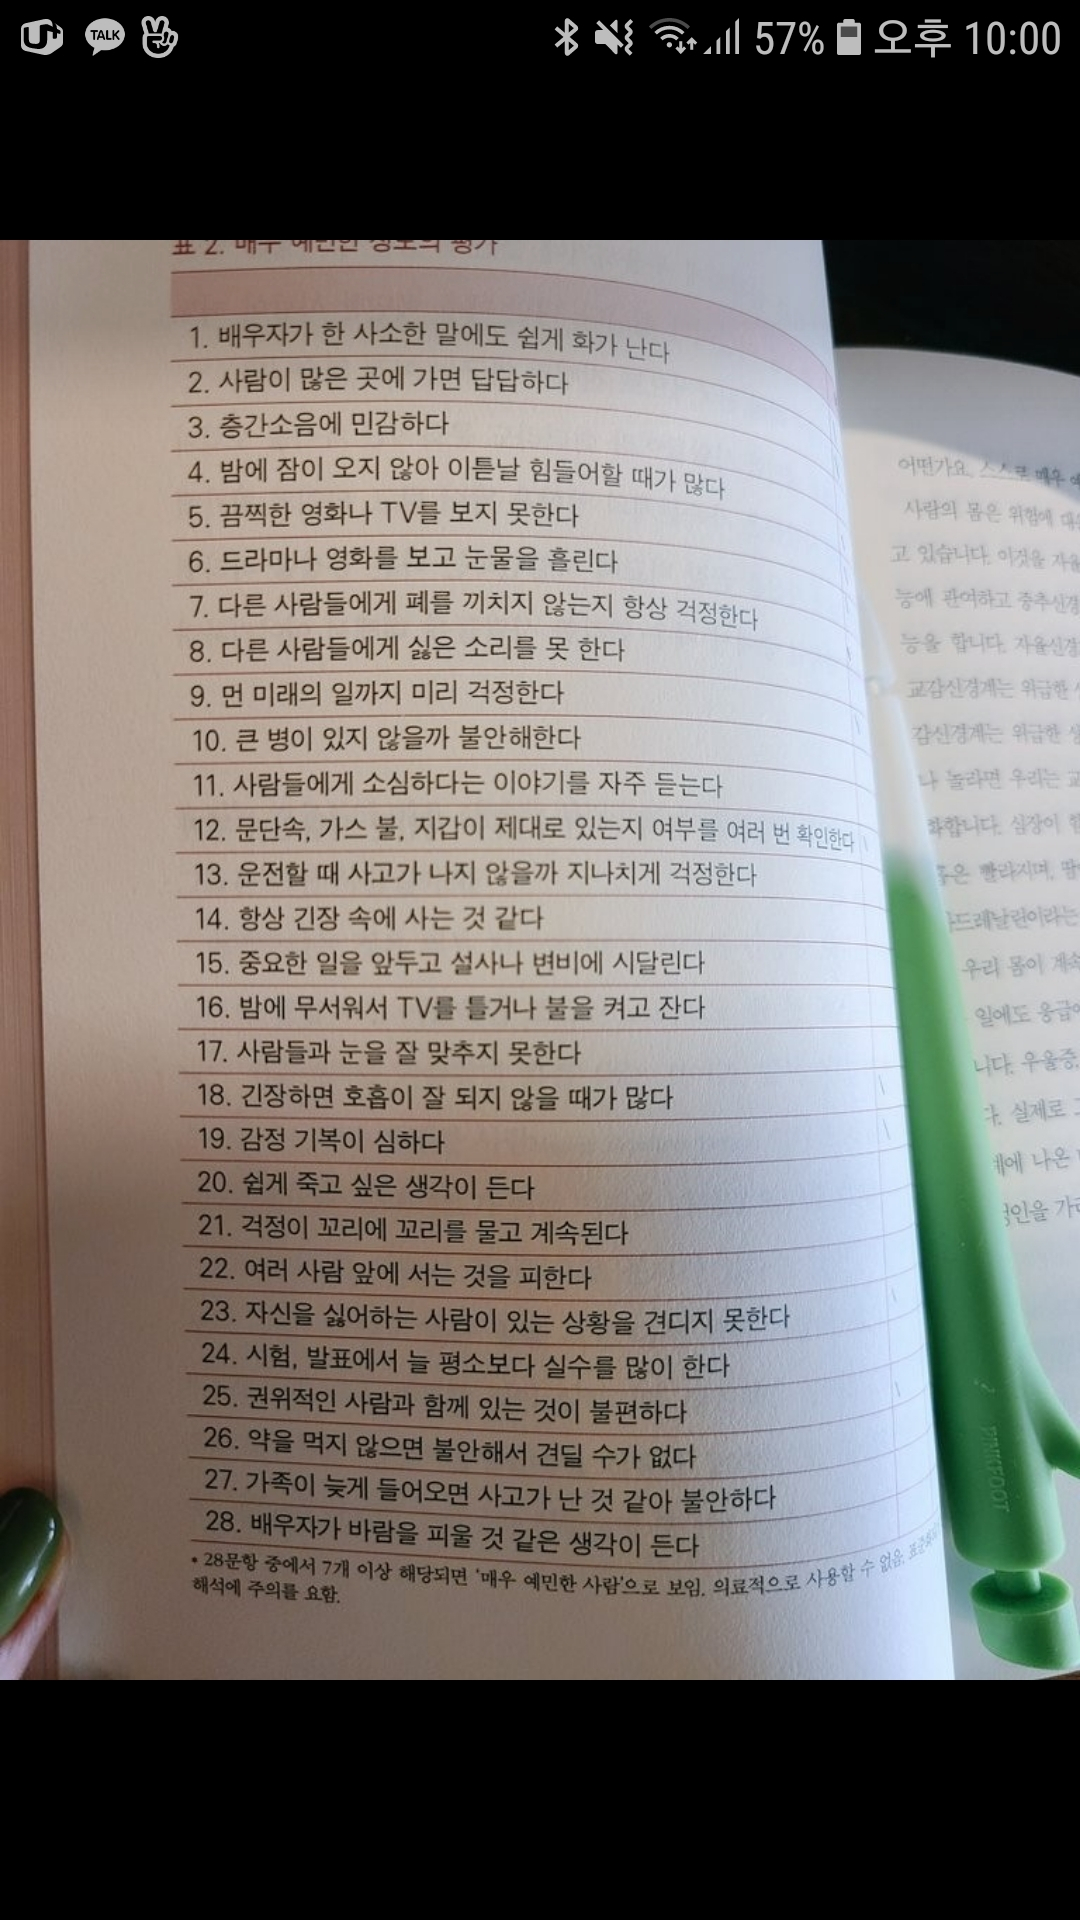 TALK
57%
오후 10:00
표 2. 매우 예민한 정도의 평가
1. 배우자가 한 사소한 말에도 쉽게 화가 난다
2. 사람이 많은 곳에 가면 답답하다
3. 층간소음에 민감하다
4. 밤에 잠이 오지 않아 이튿날 힘들어할 때가 많다
5. 끔찍한 영화나 TV를 보지 못한다
6. 드라마나 영화를 보고 눈물을 흘린다
7. 다른 사람들에게 폐를 끼치지 않는지 항상 걱정한다
8. 다른 사람들에게 싫은 소리를 못 한다
9. 먼 미래의 일까지 미리 걱정한다
10. 큰 병이 있지 않을까 불안해한다
11. 사람들에게 소심하다는 이야기를 자주 듣는다
12. 문단속, 가스 불, 지갑이 제대로 있는지 여부를 여러 번 확인한다
13. 운전할 때 사고가 나지 않을까 지나치게 걱정한다
14. 항상 긴장 속에 사는 것 같다
15. 중요한 일을 앞두고 설사나 변비에 시달린다
16. 밤에 무서워서 TV를 틀거나 불을 켜고 잔다
17. 사람들과 눈을 잘 맞추지 못한다
18. 긴장하면 호흡이 잘 되지 않을 때가 많다
19. 감정 기복이 심하다
20. 쉽게 죽고 싶은 생각이 든다
21. 걱정이 꼬리에 꼬리를 물고 계속된다
22. 여러 사람 앞에 서는 것을 피한다
23. 자신을 싫어하는 사람이 있는 상황을 견디지 못한다
24. 시험, 발표에서 늘 평소보다 실수를 많이 한다
25. 권위적인 사람과 함께 있는 것이 불편하다
26. 약을 먹지 않으면 불안해서 견딜 수가 없다
27. 가족이 늦게 들어오면 사고가 난 것 같아 불안하다
28. 배우자가 바람을 피울 것 같은 생각이 든다
* 28문항 중에서 7개 이상 해당되면 '매우 예민한 사람'으로 보임. 의료적으로 사용할 수 없음.
해석에 주의를 요함.
어떤가요. 스스로 매우
사람의 몸은 위험에
고 있습니다. 이것을
능에 관여하고 중추신경
능을 합니다. 자율신경
교감신경계는 위급한
감신경계는 위급한
나 놀라면 우리는
화합니다. 심장이
은 빨라지며,
우리 몸이 계속
일에도 응급
니다. 우울증,
다. 실제로
에 나온
PINKFOOT